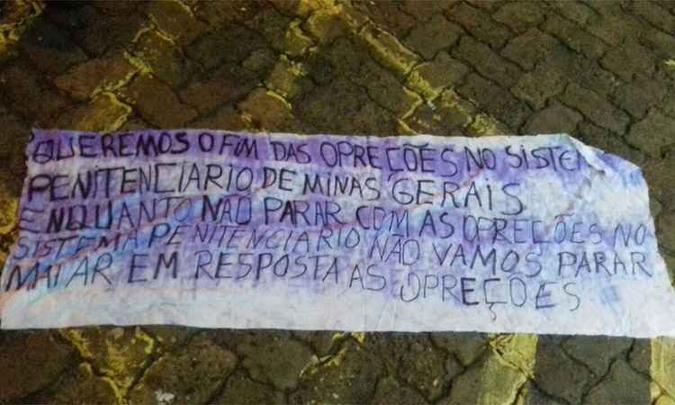 QUEREMOS O FIM DAS OPREÇÕES NO SISTE
PENITENCIARIO DE MINAS GERAIS
ENQUANTO NÃO PARAR COM AS OPREÇÕES NO
SISTEMA PENITENCIARIO NÃO VAMOS PARAR
MATAR EM RESPOSTA AS OPREÇÕES